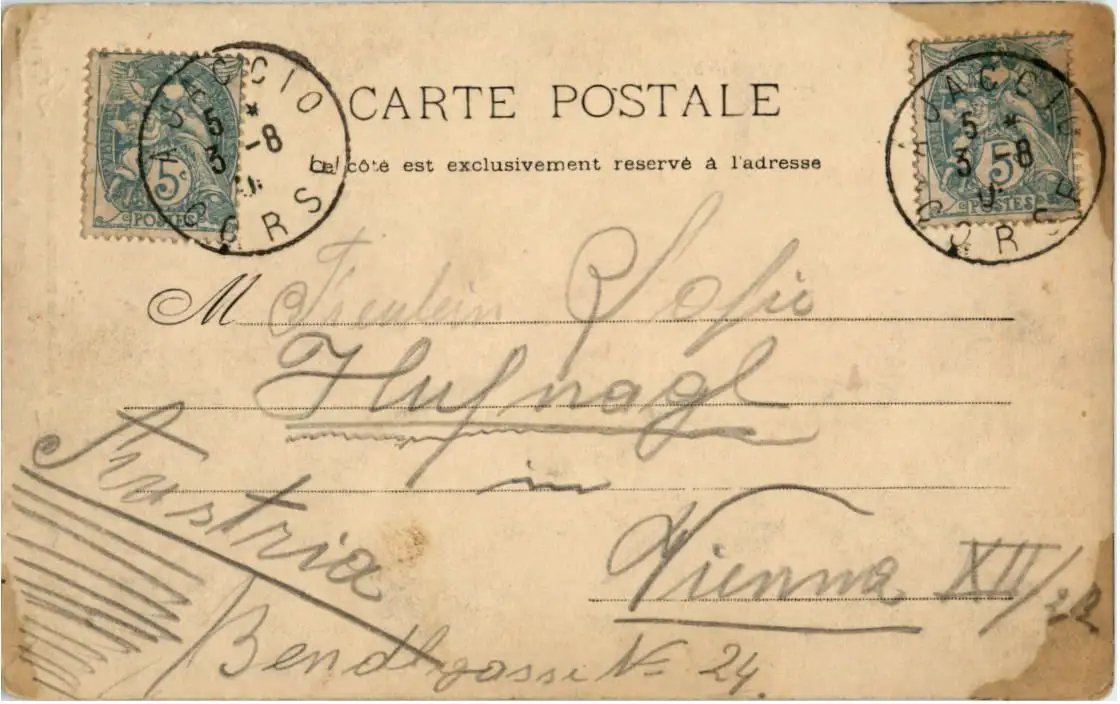 AJACCIO
5 *
3 -8
CORSE
5c
POSTES
CARTE POSTALE
Ce côté est exclusivement reservé à l'adresse
AJACCIO
5 *
3 8
CORSE
5c
POSTES
M Fräulein Sofie
Hufnagl
in
Vienna XII/2
Austria
Bendlgasse No 24.